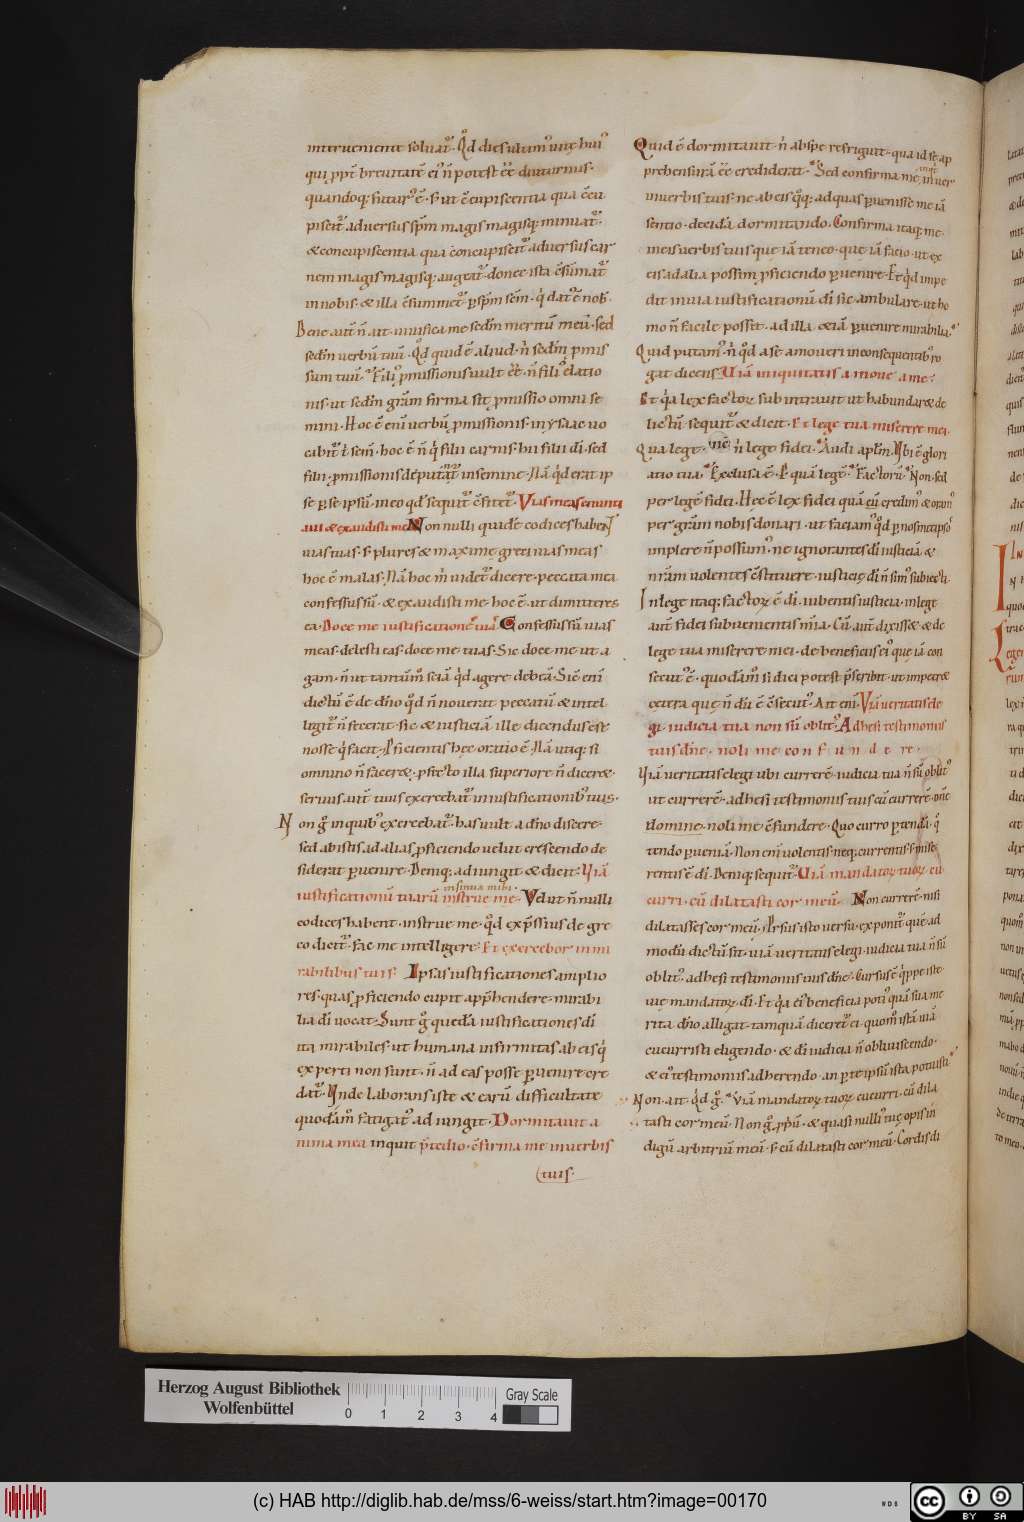 interveniente solvat᷑. Qd̊ dies ultim᷒ vitę hui᷒
qui ꝓpt̄ brevitatē ei᷒ n̄ potest ēē diuturnus.
quandoq; futur᷒ ē. s; ut c̄cupiscentia qua c̄cu
piscit᷑ adversus sp̄m magis magisq; minuat᷑.
& concupiscentia qua concupiscit᷑ adversus car
nem magis magisq; augeat᷑. donec ista c̄sūmat᷑
in nobis. & illa c̄summet᷑ ꝑ sp̄m sc̄m. q̇ dat᷒ ē nob̄.
Bene aut̄ n̄ ait. vivifica me sedm̄ meritū meū. sed
sedm̄ verbū tuū. Qd̊ quid ē aliud. n̄ sedm̄ ꝓmis
sum tuū. Fili᷒ ꝓmissionis vult ēē. n̄ fili᷒ elatio
nis. ut sedm̄ grām firma sit ꝓmissio omni se
mini. Hoc ē eni verbū ꝓmissionis. in ysaac vo
cabit᷑ t̄ sem̄. hoc ē n̄ q̇ filii carnis. hii filii dī. sed
filii ꝓmissionis deputant᷑ in semine. Nā qḋ erat ip
se ꝑ se ipsū. in eo qd̊ sequit᷑ c̄fitet᷑. Vias meas enunti
avi & exaudisti me. Non nulli quidē codices haben
vias tuas. s; plures & maximę greci vias meas
hoc ē malas. Nā hoc m̄ videt᷑ dicere. peccata mea
confessus sū. & exaudisti me. hoc ē. ut dimitteres
ea. Doce me iustificationē tuā. Confessus sū vias
meas. delesti eas. doce me tuas. Sic doce me ut a
gam. n̄ ut tantūm᷒ sciā qḋ agere debeā. Sic᷒ eni
dictū ē de dn̄o qd̊ n̄ noverit peccatū & intel
ligit᷑ n̄ fecerat. sic & iusticiā ille dicendus ēst
nosse q̇ facit. Ꝓficientis hęc oratio ē. Nā utiq; si
omnino n̄ faceret. ꝓfecto illa superiore n̄ diceret.
servus aut̄ tuus exercebat᷑ in iustificationib᷒ tuis.
Non ḡ in quib᷒ exercebat᷑. has vult a dn̄o discere.
sed ab istis ad alias ꝓficiendo velut crescendo de
siderat ꝑvenire. Deniq; adiungit & dicit. Viā
insinua mihi.
iustificationū tuarū instrue me. Vel ut n̄ nulli
codices habent. instrue me. qd̊ exp̄ssius de gre
co dicit᷑. fac me intelligere. Et exercebor in mi
rabilibus tuis. Ipsas iustificationes amplio
res. quas ꝓficiendo cupit app̄hendere. mirabi
lia dī vocat. Sunt ḡ quedā iustificationes dī
ita mirabiles. ut humana infirmitas ab eis q̇
experti non sunt. n̄ ad eas posse ꝑvenire cre
dat᷑. Unde laborans iste & earū difficultate
quodām᷒ fatigat᷒ adiungit. Dormitavit a
nima mea inquit p̄ tedio. c̄firma me in verbis
tuis.
Quid ē dormitavit. n̄ ab spe refrigescit. qua id se ap
prehensurā ēē crediderat. Sed confirma me in ver
in verbis tuis. ne ab eis q̊q; ad quas ꝑvenisse me iā
sentio. decidā dormitando. Confirma itaq; me
in eis verbis tuis que iā teneo. que iā facio. ut ex
eis ad alia possim ꝓficiendo ꝑvenire. Et qḋ impe
dit in via iustificationū dī sic ambulare. ut ho
mo n̄ facile posset ad illa etiā ꝑvenire mirabilia.
Quid putam᷒. n̄ qd̊ a se amoveri in consequentib᷒ ro
gat dicens. Viā iniquitatis amove a me.
Et q̇a lex factoꝝ subintravit ut habundaret de
lictū. sequit᷑ & dicit. Et lege tua miserere mei.
Qua lege. n̄ lege fidei. Audi aplm̄. Ubi ē glori
atio tua. Exclusa ē. P quā legē. Factorū. Non. sed
per legē fidei. Hęc ē lex fidei quā cū credim᷒ & oram᷒
per grām nobis donari. ut faciam᷒ qd̊ ꝑ nosmetipsos
implere n̄ possum᷒. ne ignorantes dī iusticiā &
nrām volentes c̄stituere. iusticię dī n̄ sim᷒ subiecti.
In lege itaq; factoꝝ ē dī iubentis iusticia. in lege
aut̄ fidei subvenientis mīa. Cū aut̄ dixisset. & de
lege tua miserere mei. de beneficiis ei᷒ que iā con
secut᷒ ē. quodām᷒ si dici potest p̄scribit. ut impetret
cetera que n̄ dū ē c̄secut᷒. Ait eni. Viā veritatis ele
gi. iudicia tua non sū oblit᷒. Adhesi testimoniis
tuis dn̄e. noli me confundere.
Viā veritatis elegi ubi currerē. iudicia tua n̄ sū oblit᷒
ut currerē. adhesi testimoniis tuis cū currerē. dn̄e
domine. noli me c̄fundere. Quo curro ꝑtendā. q̊
tendo ꝑveniā. Non eni volentis. neq; currentis. s; mise
rentis ē dī. Deniq; sequit᷑. Viā mandatoꝝ tuoꝝ cu
curri. cū dilatasti cor meū. Non currerē. nisi
dilatasses cor meū. Prsus isto versu. exponit᷑ quē ad
modū dictū sit. viā veritatis elegi. iudicia tua n̄ sū
oblit᷒. adhesi testimoniis tuis dn̄e. Cursus ē q̇ppe iste
vię mandatoꝝ dī. Et q̇a ei᷒ beneficia poti᷒ quā sua me
rita dn̄o alligat. tamquā diceret᷑ ei. quom᷒ istā viā
cucurristi eligendo. & dī iudicia n̄ obliviscendo.
& ei᷒ testimoniis adherendo. an ꝑ te ipsū ista potuisti
Non. ait. qḋ ḡ. Viā mandatoꝝ tuoꝝ cucurri. cū dila
tasti cor meū. Non ḡ ꝓp̄ū. & quasi nulli᷒ tuę opis in
digū arbitriū meū. s; cū dilatasti cor meū. Cordis di
Herzog August Bibliothek
Wolfenbüttel
0 1 2 3 4
Gray Scale
(c) HAB http://diglib.hab.de/mss/6-weiss/start.htm?image=00170
WDB
cc BY SA